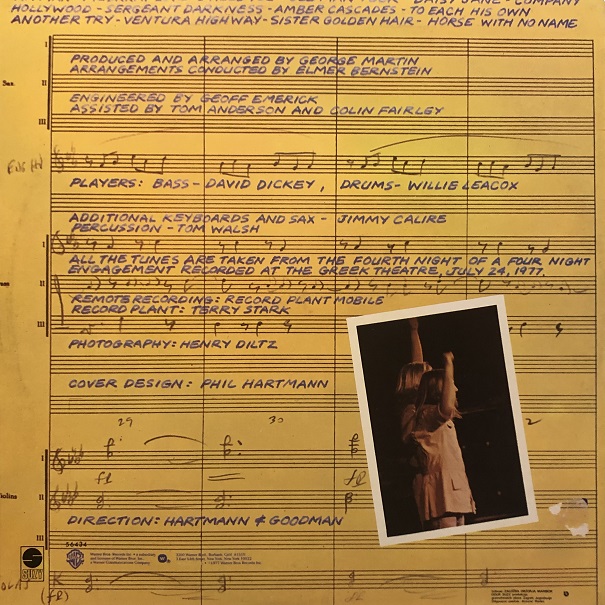 HOLLYWOOD - SERGEANT DARKNESS - AMBER CASCADES - TO EACH HIS OWN
ANOTHER TRY - VENTURA HIGHWAY - SISTER GOLDEN HAIR - HORSE WITH NO NAME
I
PRODUCED AND ARRANGED BY GEORGE MARTIN
ARRANGEMENTS CONDUCTED BY ELMER BERNSTEIN
II
ENGINEERED BY GEOFF EMERICK
ASSISTED BY TOM ANDERSON AND COLIN FAIRLEY
III
PLAYERS: BASS - DAVID DICKEY, DRUMS - WILLIE LEACOX
ADDITIONAL KEYBOARDS AND SAX - JIMMY CALIRE
PERCUSSION - TOM WALSH
I
ALL THE TUNES ARE TAKEN FROM THE FOURTH NIGHT OF A FOUR NIGHT
ENGAGEMENT RECORDED AT THE GREEK THEATRE, JULY 24, 1977.
II
REMOTE RECORDING: RECORD PLANT MOBILE
RECORD PLANT: TERRY STARK
III
PHOTOGRAPHY: HENRY DILTZ
COVER DESIGN: PHIL HARTMANN
29 30
I
II
DIRECTION: HARTMANN & GOODMAN
56434
SUZY